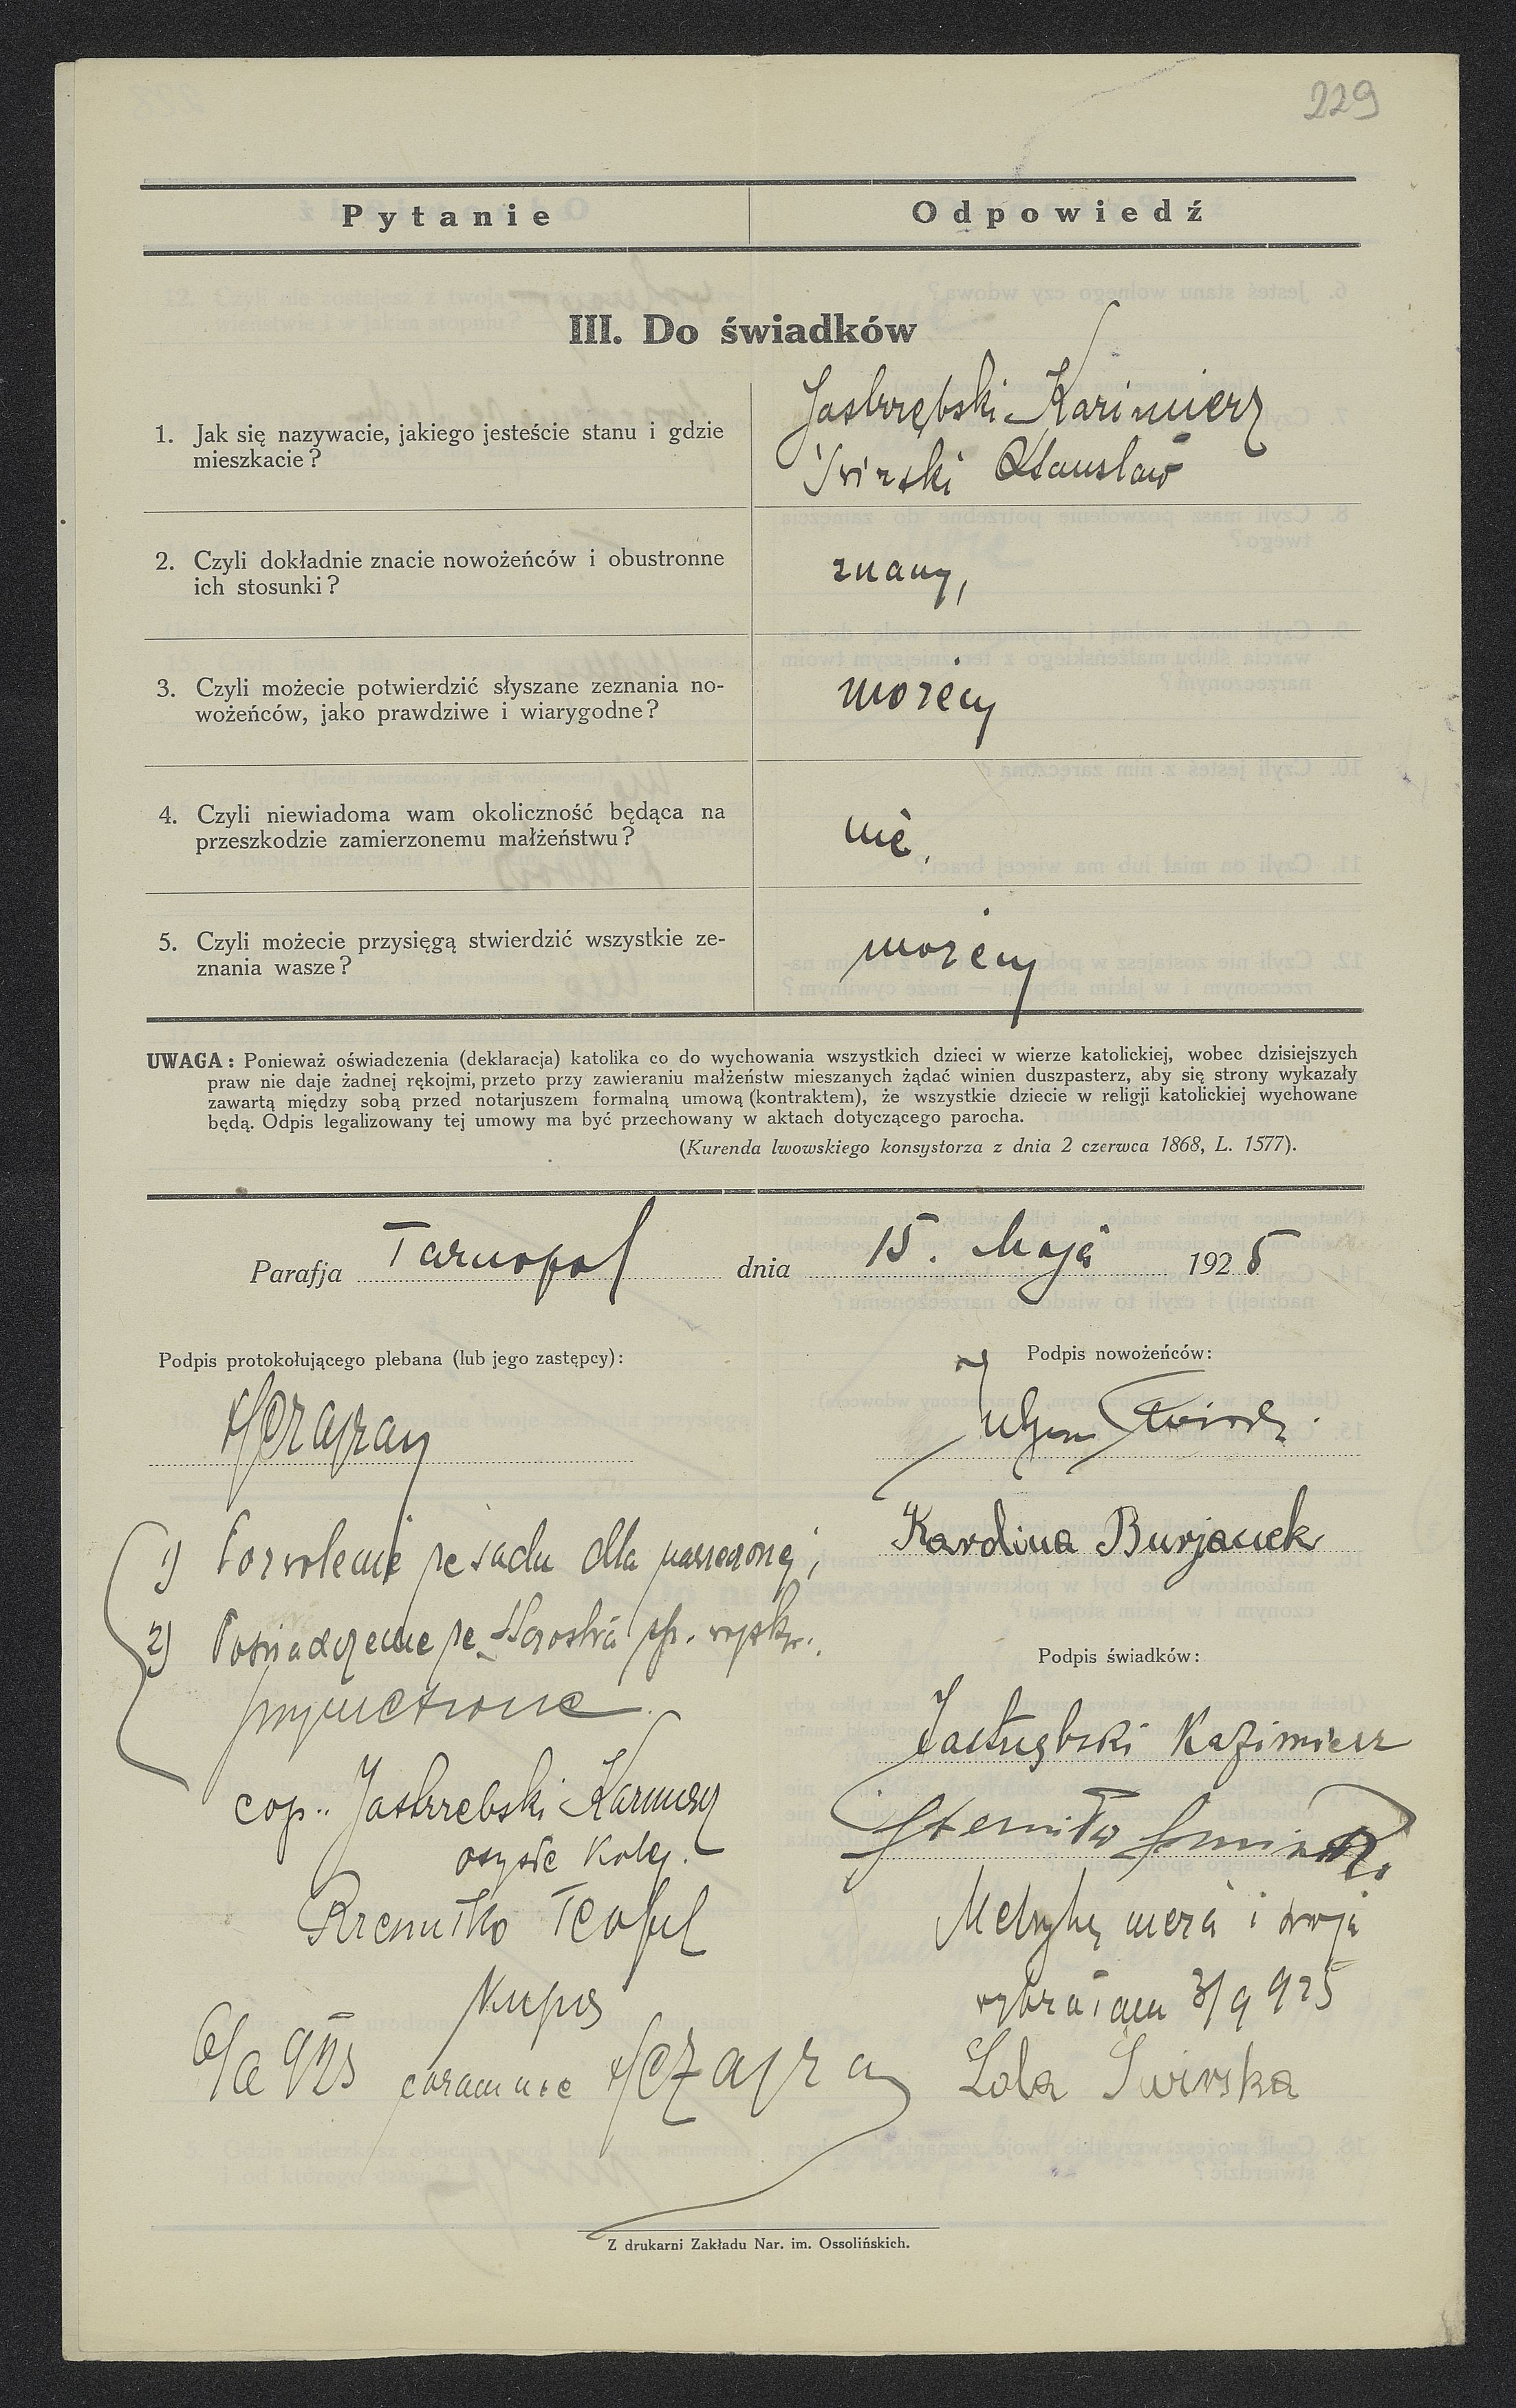 229
Pytanie
Odpowiedź
III. Do świadków
1. Jak się nazywacie, jakiego jesteście stanu i gdzie
mieszkacie?
Jastrzębski Kazimierz
Świrski Stanisław
2. Czyli dokładnie znacie nowożeńców i obustronne
ich stosunki?
znamy,
3. Czyli możecie potwierdzić słyszane zeznania no-
wożeńców, jako prawdziwe i wiarygodne?
możemy
4. Czyli niewiadoma wam okoliczność będąca na
przeszkodzie zamierzonemu małżeństwu?
nie,
5. Czyli możecie przysięgą stwierdzić wszystkie ze-
znania wasze?
możemy
UWAGA: Ponieważ oświadczenia (deklaracja) katolika co do wychowania wszystkich dzieci w wierze katolickiej, wobec dzisiejszych
praw nie daje żadnej rękojmi, przeto przy zawieraniu małżeństw mieszanych żądać winien duszpasterz, aby się strony wykazały
zawartą między sobą przed notarjuszem formalną umową (kontraktem), że wszystkie dziecie w religji katolickiej wychowane
będą. Odpis legalizowany tej umowy ma być przechowany w aktach dotyczącego parocha.
(Kurenda lwowskiego konsystorza z dnia 2 czerwca 1868, L. 1577).
Parafja Tarnopol dnia 15. Maja 1925
Podpis protokołującego plebana (lub jego zastępcy):
Podpis nowożeńców:
Karolina Burjanek
1) Pozwolenie ze sadu dla narzeczonej;
2) Poświadczenie ze Starostwa
Podpis świadków:
Jastrzębski Kazimierz
cop.. Jastrzebski Kazimierz
Teofil
Metrykę męża i moją
kupiec
wybrałam 3/9 925
coram me
Lola Świrska
Z drukarni Zakładu Nar. im. Ossolińskich.